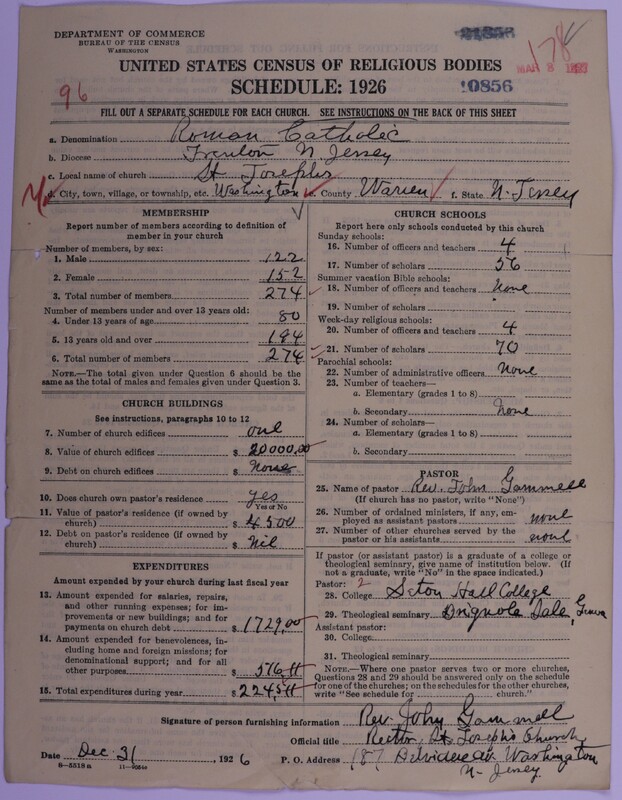 DEPARTMENT OF COMMERCE
BUREAU OF THE CENSUS
WASHINGTON
178
MAR 3 1927
UNITED STATES CENSUS OF RELIGIOUS BODIES
SCHEDULE: 1926
10856
96
FILL OUT A SEPARATE SCHEDULE FOR EACH CHURCH. SEE INSTRUCTIONS ON THE BACK OF THIS SHEET
a. Denomination Roman Catholic
b. Diocese Trenton N. Jersey
c. Local name of church St Josephs
d. City, town, village, or township, etc. Washington e. County Warren f. State N. Jersey
MEMBERSHIP
Report number of members according to definition of member in your church
Number of members, by sex:
1. Male 122
2. Female 152
3. Total number of members 274
Number of members under and over 13 years old:
4. Under 13 years of age 80
5. 13 years old and over 194
6. Total number of members 274
NOTE.—The total given under Question 6 should be the same as the total of males and females given under Question 3.
CHURCH BUILDINGS
See instructions, paragraphs 10 to 12
7. Number of church edifices one
8. Value of church edifices $ 20000.00
9. Debt on church edifices $ None
10. Does church own pastor's residence yes
Yes or No
11. Value of pastor's residence (if owned by church) $ 4500
12. Debt on pastor's residence (if owned by church) $ Nil
EXPENDITURES
Amount expended by your church during last fiscal year
13. Amount expended for salaries, repairs, and other running expenses; for improvements or new buildings; and for payments on church debt $ 1729,00
14. Amount expended for benevolences, including home and foreign missions; for denominational support; and for all other purposes $ 516
15. Total expenditures during year $ 2245
CHURCH SCHOOLS
Report here only schools conducted by this church
Sunday schools:
16. Number of officers and teachers 4
17. Number of scholars 56
Summer vacation Bible schools:
18. Number of officers and teachers None
19. Number of scholars
Week-day religious schools:
20. Number of officers and teachers 4
21. Number of scholars 70
Parochial schools:
22. Number of administrative officers None
23. Number of teachers—
a. Elementary (grades 1 to 8)
b. Secondary None
24. Number of scholars—
a. Elementary (grades 1 to 8)
b. Secondary
PASTOR
25. Name of pastor Rev. John Gammell
(If church has no pastor, write "None")
26. Number of ordained ministers, if any, employed as assistant pastors none
27. Number of other churches served by the pastor or his assistants none
If pastor (or assistant pastor) is a graduate of a college or theological seminary, give name of institution below. (If not a graduate, write "No" in the space indicated.)
Pastor: 2
28. College Seton Hall College
29. Theological seminary Brignola Sale, Genoa
Assistant pastor:
30. College
31. Theological seminary
NOTE.—Where one pastor serves two or more churches, Questions 28 and 29 should be answered only on the schedule for one of the churches; on the schedules for the other churches, write "See schedule for church."
Signature of person furnishing information Rev. John Gammell
Official title Rector, St Josephs Church
Date Dec. 31, 1926 P. O. Address 187 Belvidere av. Washington
N. Jersey
8-5518 a